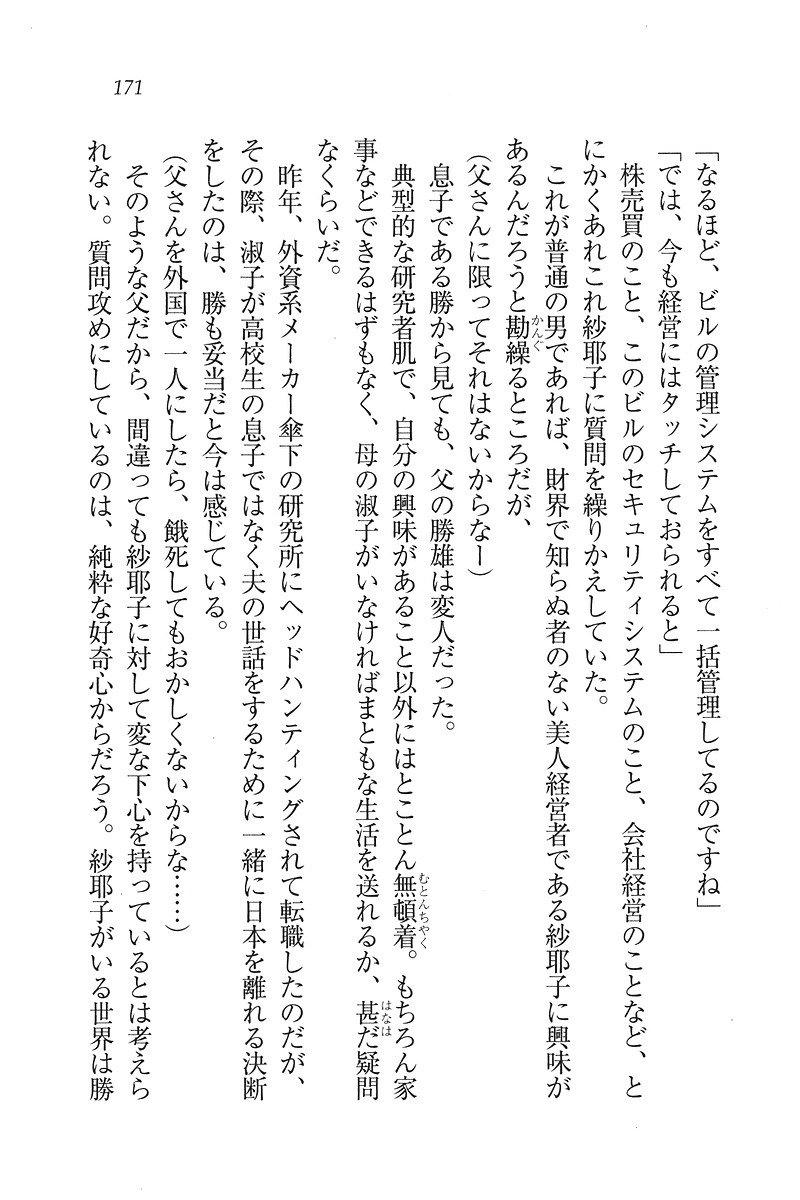 171
「なるほど、ビルの管理システムをすべて一括管理してるのですね」
「では、今も経営にはタッチしておられると」
株売買のこと、このビルのセキュリティシステムのこと、会社経営のことなど、と
にかくあれこれ紗耶子に質問を繰りかえしていた。
これが普通の男であれば、財界で知らぬ者のない美人経営者である紗耶子に興味が
あるんだろうと勘繰るところだが、
(父さんに限ってそれはないからなー)
息子である勝から見ても、父の勝雄は変人だった。
典型的な研究者肌で、自分の興味があること以外にはとことん無頓着。もちろん家
事などできるはずもなく、母の淑子がいなければまともな生活を送れるか、甚だ疑問
なくらいだ。
昨年、外資系メーカー傘下の研究所にヘッドハンティングされて転職したのだが、
その際、淑子が高校生の息子ではなく夫の世話をするために一緒に日本を離れる決断
をしたのは、勝も妥当だと今は感じている。
(父さんを外国で一人にしたら、餓死してもおかしくないからな……)
そのような父だから、間違っても紗耶子に対して変な下心を持っているとは考えら
れない。質問攻めにしているのは、純粋な好奇心からだろう。紗耶子がいる世界は勝